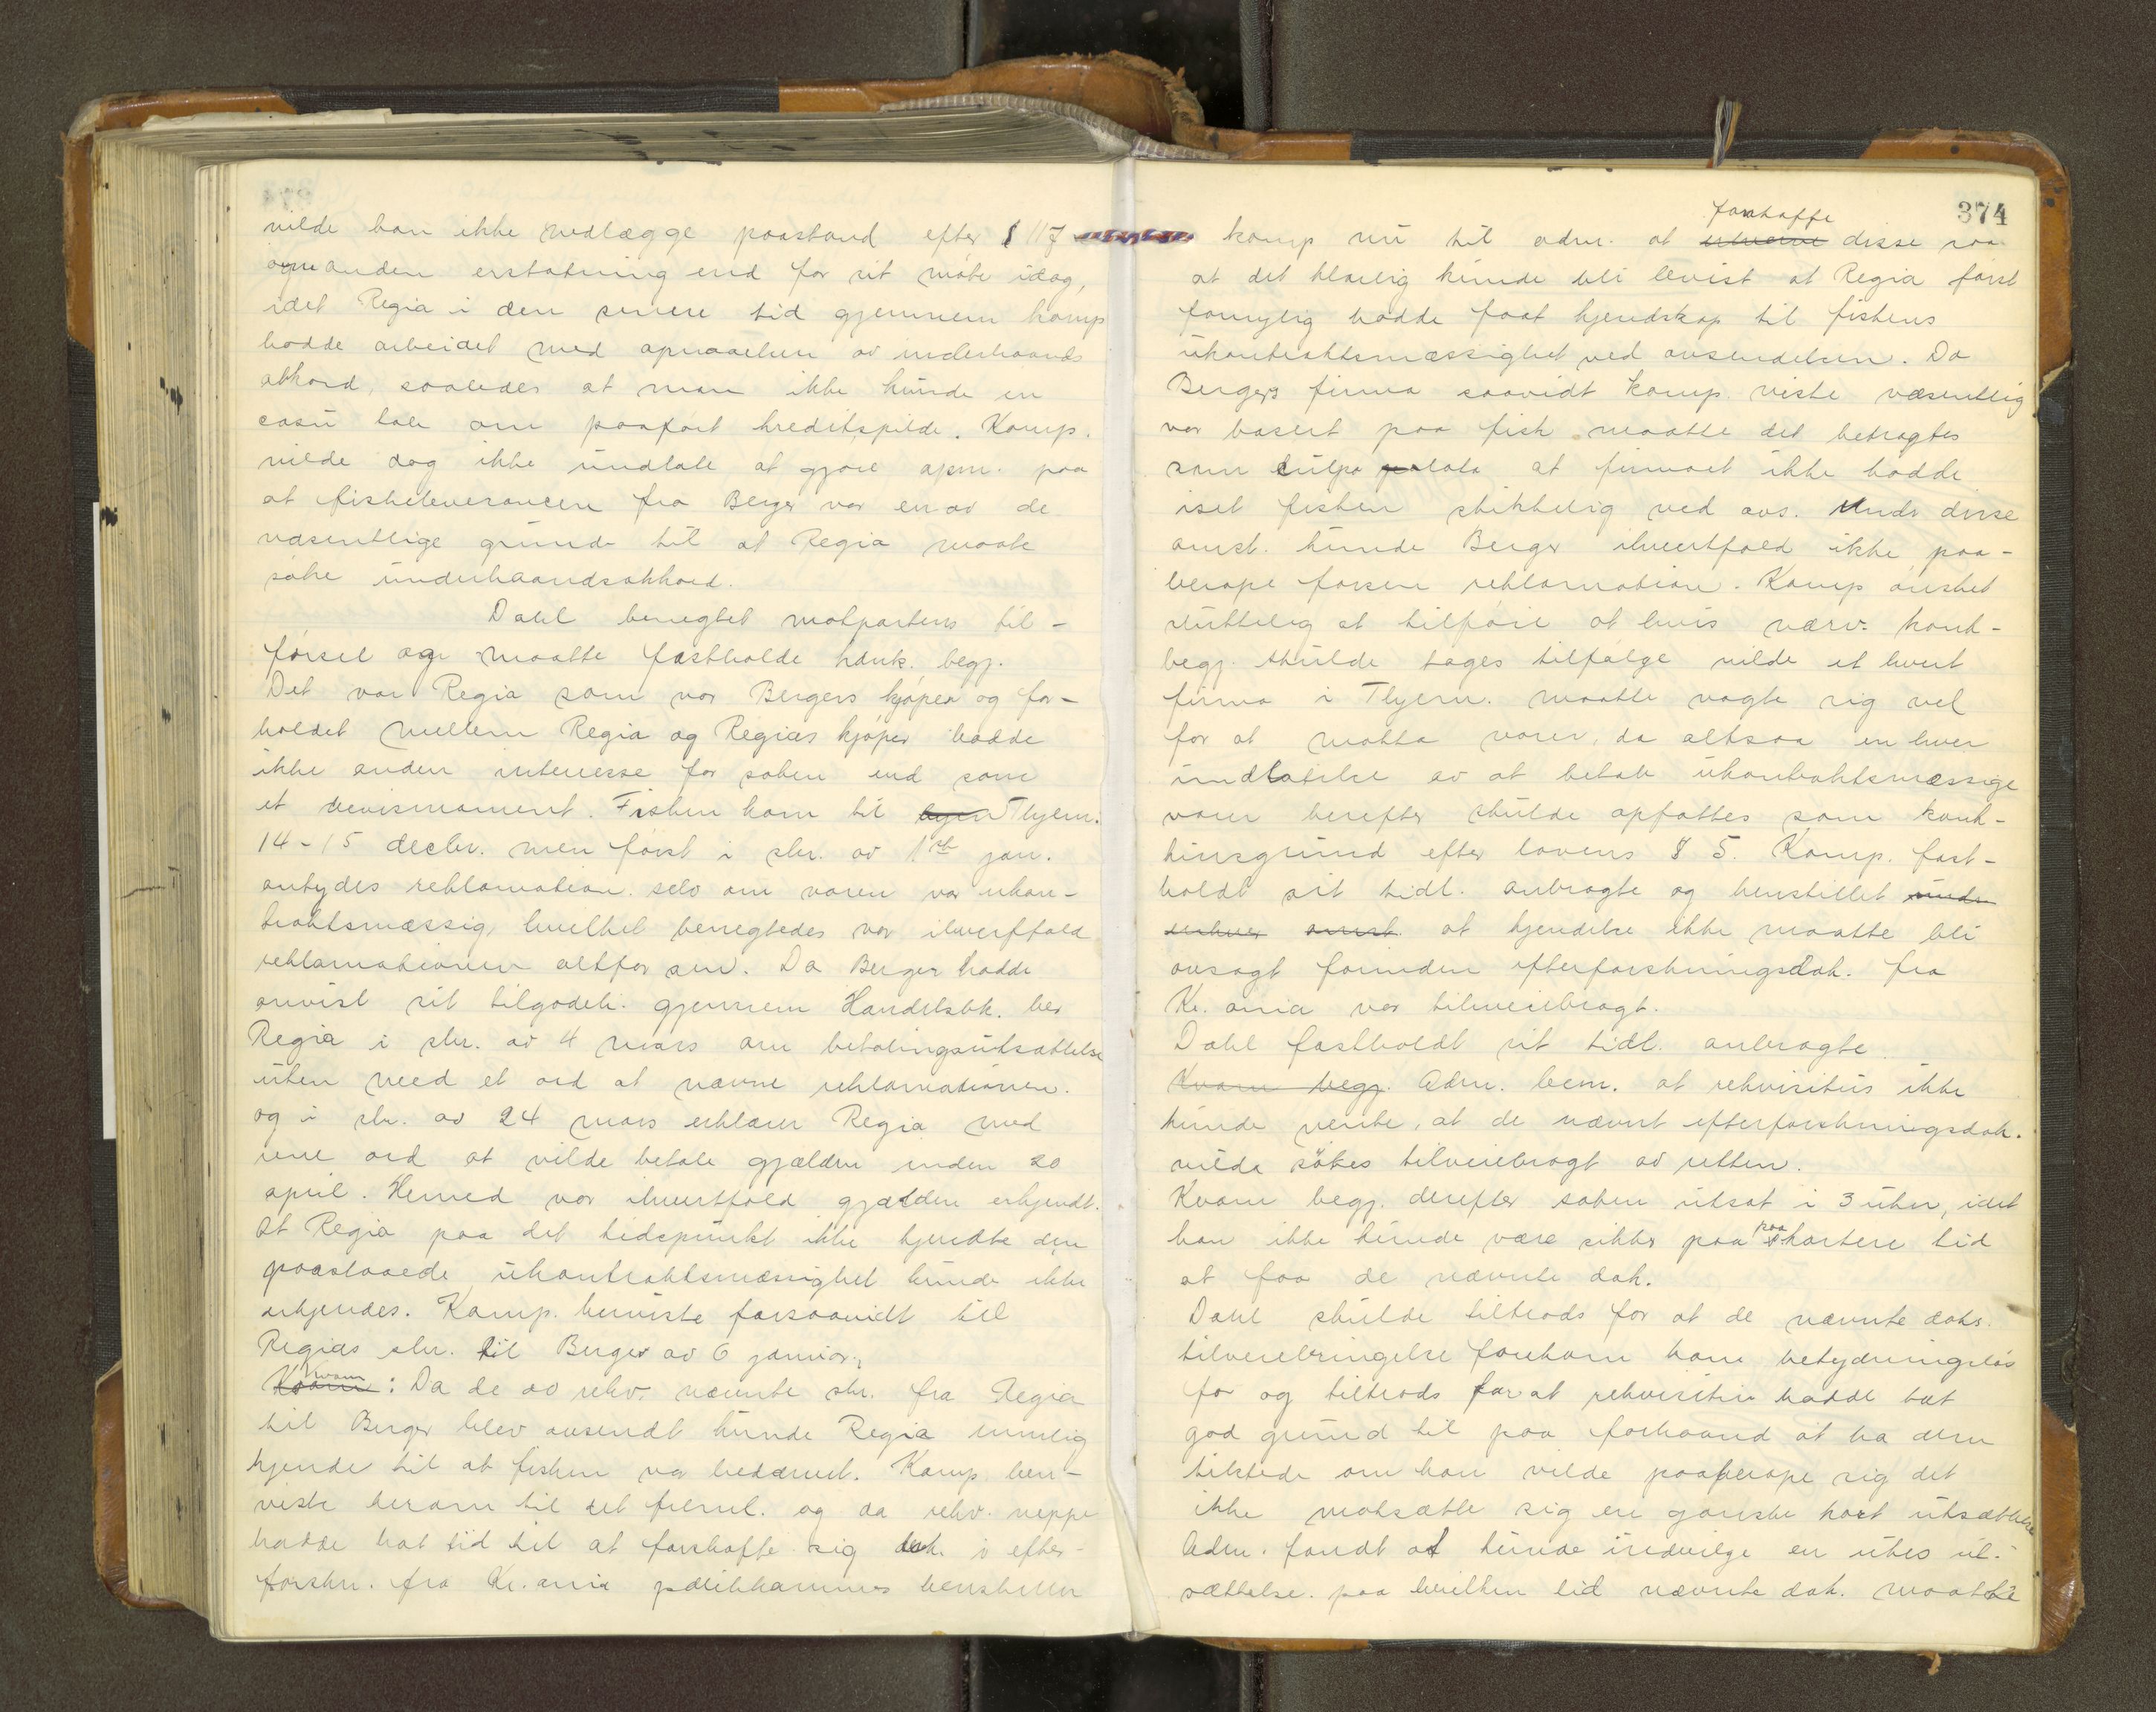 vilde han ikke nedlægge paastand efter § 117
ogsaa anden erstatning end for sit møte idag,
idet Regia i den senere tid gjennem komp
hadde arbeidet med opnaaelsen av underhaands
akkord, saaledes at man ikke kunde in
casu tale om paaført kreditspilde. Komp.
vilde dog ikke undlate at gjøre opm. paa
at fiskeleverancen fra Berger var en av de
væsentlige grunde til at Regia maate
søke underhaandsakkord.
Dahl benegtet motpartens til-
førsel og maatte fastholde konk. begj.
Det var Regia som var Bergers kjøper og for-
holdet mellem Regia og Regias kjøper hadde
ikke anden interesse for saken end som
et bevismoment. Fisken kom til byen Thjem.
14-15 decbr. men først i skr. av 1ste jan.
antydes reklamation. selv om varen var ukon-
traktsmæssig, hvilket benegtedes var ihvertfald
reklamationen altfor sen. Da Berger hadde
anvist sit tilgodeh. gjennem Handelsbk. ber
Regia i skr. av 4 mars om betalingsutsættelse
uten med et ord at nævne reklamationen.
og i skr. av 24 mars erklærer Regia med
rene ord at vilde betale gjælden inden 20
april. Herved var ihvertfald gjælden erkjendt.
At Regia paa det tidspunkt ikke kjendte den
paastaaede ukontraktsmæssighet kunde ikke
erkjendes. Komp. henviste forsaavidt til
Regias skr. til Berger av 6 januar.
Kvam: Da de av rekv. nævnte skr. fra Regia
til Berger blev avsendt kunde Regia umulig
kjende til at fisken var bedærvet. Komp. hen-
viste herom til det freml. og da rekv. neppe
hadde hat tid til at forskaffe sig dok. i efter-
forskn. fra Kr.ania politikammer henstiller
374
forskaffe
komp nu til adm. at erhverve disse saa
at det klarlig kunde bli bevist at Regia først
fornylig hadde faat kjendskap til fiskens
ukontraktsmæssighet ved avsendelsen. Da
Bergers firma saavidt komp. viste væsentlig
var basert paa fisk maatte det betragtes
som culpa lata at firmaet ikke hadde
iset fisken skikkelig ved avs. Under disse
omst. kunde Berger ihvertfald ikke paa-
berope forsen reklamation. Komp ønsket
sluttelig at tilføie at hvis nærv. konk-
begj. skulde tages tilfølge vilde et hvert
firma i Thjem. maatte vogte sig vel
for at motta varer, da altsaa en hver
undlatelse av at betale ukontraktsmæssige
varer herefter skulde opfattes som konk-
kursgrund efter lovens § 5. Komp. fast-
holdt sit tidl. anbragte og henstillet under
enhver omst. at kjendelse ikke maatte bli
avsagt forinden efterforskningsdok. fra
Kr.ania var tilveiebragt.
Dahl fastholdt sit tidl. anbragte.
Kvam begj. Adm. bem. at rekvisitus ikke
kunde vente, at de nævnt efterforskningsdok.
vilde søkes tilveiebragt av retten.
Kvam begj. derefter saken utsat i 3 uker, idet
han ikke kunde være sikker paa paa kortere tid
at faa de nævnte dok.
Dahl skulde tiltrods for at de nævnte doks.
tilveiebringelse forekom ham betydningsløs
for og tiltrods for at rekvisitus hadde hat
god grund til paa forhaand at ha dem
tilstede om han vilde paaberope sig det
ikke motsætte sig en ganske kort utsættelse
Adm. fandt at kunde indvilge en ukes ut-
sættelse. paa hvilken tid nævnte dok. maatte